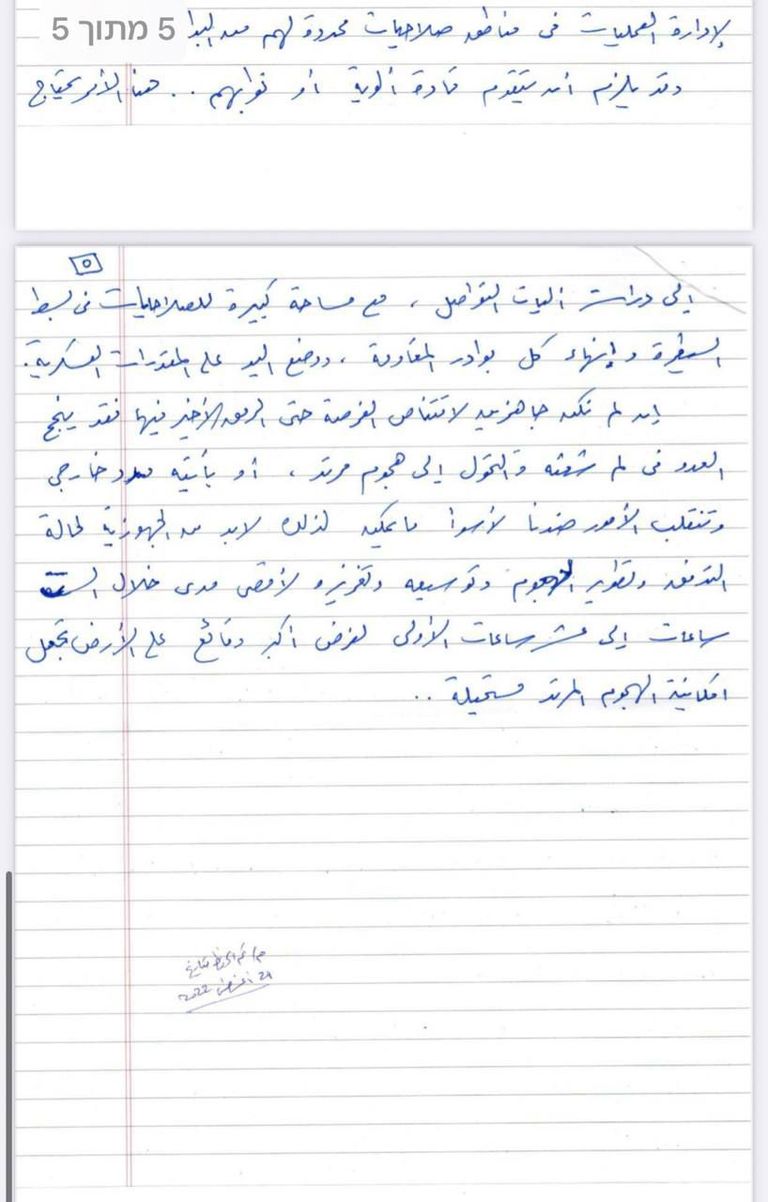 5 מתוך 5
لإدارة العمليات في مناطق صلاحيات محددة لهم من البدا
وقد يلزم أن يتقدم قادة ألوية أو نوابهم .. هنا الأمر يحتاج
٥
إلى دراسة آليات التواصل ، مع مساحة كبيرة للصلاحيات في بسط
السيطرة وإنهاء كل بوادر المقاومة ، ووضع اليد على المقدرات العسكرية .
إن لم نكن جاهزين لاقتناص الفرصة حتى الرمق الأخير فيها فقد ينجح
العدو في لم شعثه والتحول إلى هجوم مرتد ، أو يأتيه مدد خارجي
وتنقلب الأمور ضدنا لأسوأ ما يمكن لذلك لابد من الجهوزية لحالة
التدفق وتطوير الهجوم وتوسيعه وتعزيزه لأقصى مدى خلال الست
ساعات إلى عشر ساعات الأولى لفرض أكبر وقائع على الأرض تجعل
امكانية الهجوم المرتد مستحيلة ..
24 أغسطس 2022